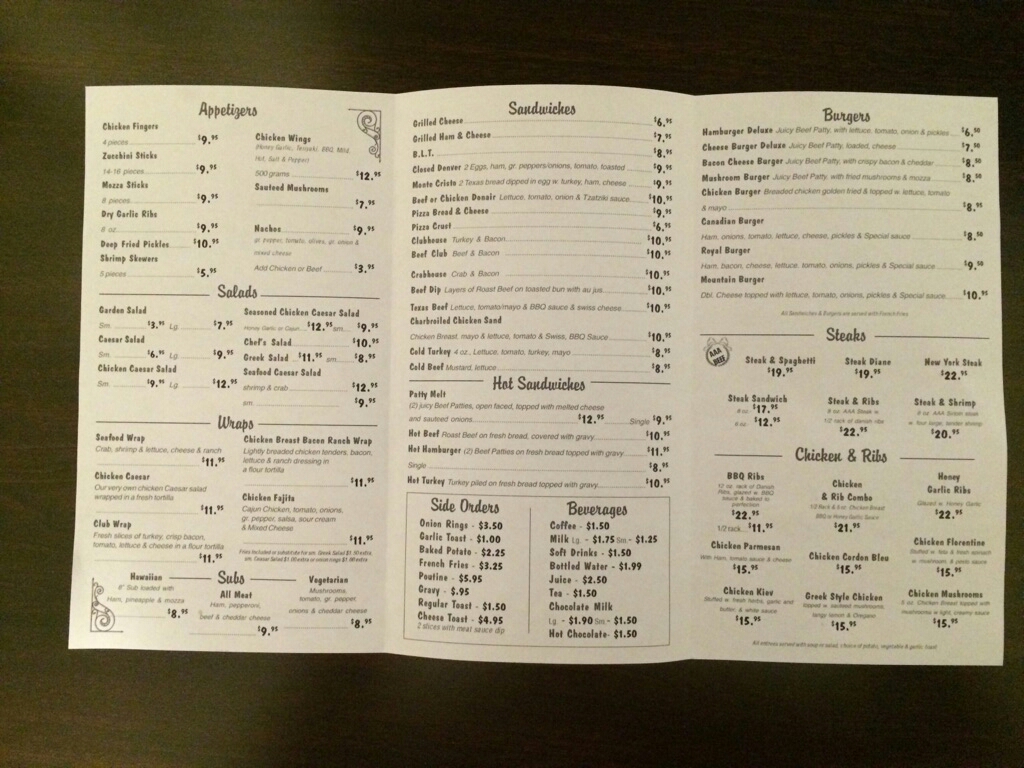 Appetizers
Chicken Fingers
4 pieces $9.95
Zucchini Sticks
14-16 pieces $9.95
Mozza Sticks
8 pieces $9.95
Dry Garlic Ribs
8 oz. $9.95
Deep Fried Pickles $10.95
Shrimp Skewers
5 pieces $5.95
Chicken Wings
(Honey Garlic, Teriyaki, BBQ, Mild,
Hot, Salt & Pepper)
500 grams $12.95
Sauteed Mushrooms
$7.95
Nachos $9.95
gr. pepper, tomato, olives, gr. onion &
mixed cheese
Add Chicken or Beef $3.95
Salads
Garden Salad
Sm. $3.95 Lg. $7.95
Caesar Salad
Sm. $6.95 Lg. $9.95
Chicken Caesar Salad
Sm. $9.95 Lg. $12.95
Seasoned Chicken Caesar Salad
Honey Garlic or Cajun $12.95 sm. $9.95
Chef's Salad $10.95
Greek Salad $11.95 sm. $8.95
Seafood Caesar Salad
shrimp & crab $12.95
sm. $9.95
Wraps
Seafood Wrap
Crab, shrimp & lettuce, cheese & ranch
$11.95
Chicken Caesar
Our very own chicken Caesar salad
wrapped in a fresh tortilla
$11.95
Club Wrap
Fresh slices of turkey, crisp bacon,
tomato, lettuce & cheese in a flour tortilla
$11.95
Chicken Breast Bacon Ranch Wrap
Lightly breaded chicken tenders, bacon,
lettuce & ranch dressing in
a flour tortilla
$11.95
Chicken Fajita
Cajun Chicken, tomato, onions,
gr. pepper, salsa, sour cream
& Mixed Cheese
$11.95
Fries included or substitute for sm. Greek Salad $1.50 extra,
sm. Caesar Salad $1.00 extra or onion rings $1.00 extra
Subs
Hawaiian
8" Sub loaded with
Ham, pineapple & mozza
$8.95
All Meat
Ham, pepperoni,
beef & cheddar cheese
$9.95
Vegetarian
Mushrooms,
tomato, gr. pepper,
onions & cheddar cheese
$8.95
Sandwiches
Grilled Cheese $6.95
Grilled Ham & Cheese $7.95
B.L.T. $8.95
Closed Denver 2 Eggs, ham, gr. peppers/onions, tomato, toasted $9.95
Monte Cristo 2 Texas bread dipped in egg w. turkey, ham, cheese $9.95
Beef or Chicken Donair Lettuce, tomato, onion & Tzatziki sauce $10.95
Pizza Bread & Cheese $9.95
Pizza Crust $6.95
Clubhouse Turkey & Bacon $10.95
Beef Club Beef & Bacon $10.95
Crabhouse Crab & Bacon $10.95
Beef Dip Layers of Roast Beef on toasted bun with au jus $10.95
Texas Beef Lettuce, tomato/mayo & BBQ sauce & swiss cheese $10.95
Charbroiled Chicken Sand
Chicken Breast, mayo & lettuce, tomato & Swiss, BBQ Sauce $10.95
Cold Turkey 4 oz., Lettuce, tomato, turkey, mayo $8.95
Cold Beef Mustard, lettuce $8.95
Hot Sandwiches
Patty Melt
(2) juicy Beef Patties, open faced, topped with melted cheese
and sauteed onions $12.95 Single $9.95
Hot Beef Roast Beef on fresh bread, covered with gravy $10.95
Hot Hamburger (2) Beef Patties on fresh bread topped with gravy $11.95
Single $8.95
Hot Turkey Turkey piled on fresh bread topped with gravy $10.95
Side Orders
Onion Rings - $3.50
Garlic Toast - $1.00
Baked Potato - $2.25
French Fries - $3.25
Poutine - $5.95
Gravy - $.95
Regular Toast - $1.50
Cheese Toast - $4.95
2 slices with meat sauce dip
Beverages
Coffee - $1.50
Milk Lg. - $1.75 Sm. - $1.25
Soft Drinks - $1.50
Bottled Water - $1.99
Juice - $2.50
Tea - $1.50
Chocolate Milk
Lg. - $1.90 Sm. - $1.50
Hot Chocolate- $1.50
Burgers
Hamburger Deluxe Juicy Beef Patty, with lettuce, tomato, onion & pickles $6.50
Cheese Burger Deluxe Juicy Beef Patty, loaded, cheese $7.50
Bacon Cheese Burger Juicy Beef Patty, with crispy bacon & cheddar $8.50
Mushroom Burger Juicy Beef Patty, with fried mushrooms & mozza $8.50
Chicken Burger Breaded chicken golden fried & topped w. lettuce, tomato
& mayo $8.95
Canadian Burger
Ham, onions, tomato, lettuce, cheese, pickles & Special sauce $8.50
Royal Burger
Ham, bacon, cheese, lettuce, tomato, onions, pickles & Special sauce $9.50
Mountain Burger
Dbl. Cheese topped with lettuce, tomato, onions, pickles & Special sauce $10.95
All Sandwiches & Burgers are served with French fries
Steaks
AAA BEEF
Steak & Spaghetti
$19.95
Steak Diane
$19.95
New York Steak
$22.95
Steak Sandwich
8 oz $17.95
6 oz $12.95
Steak & Ribs
8 oz. AAA Steak w.
1/2 rack of danish ribs
$22.95
Steak & Shrimp
8 oz. AAA Sirloin steak
w. four large, tender shrimp
$20.95
Chicken & Ribs
BBQ Ribs
1/2 rack of Danish
Ribs, glazed w. BBQ
sauce & baked to
perfection
$22.95
1/2 rack $11.95
Chicken
& Rib Combo
1/2 Rack & 8 oz. Chicken Breast
BBQ or Honey Garlic Sauce
$21.95
Honey
Garlic Ribs
Glazed w. Honey Garlic
$22.95
Chicken Parmesan
With Ham, tomato sauce & cheese
$15.95
Chicken Cordon Bleu
$15.95
Chicken Florentine
Stuffed w. feta & fresh spinach
w. mushroom, & pesto sauce
$15.95
Chicken Kiev
Stuffed w. fresh herbs, garlic and
butter, & white sauce
$15.95
Greek Style Chicken
topped w. sauteed mushrooms,
tangy lemon & Oregano
$15.95
Chicken Mushrooms
6 oz. Chicken Breast topped with
mushrooms w. light, creamy sauce
$15.95
All entrees served with soup or salad, choice of potato, vegetable & garlic toast